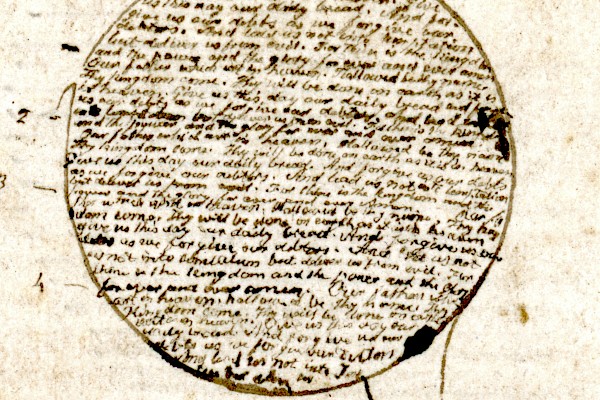 us this day our daily bread And for
give us our debts as we forgive our
debtors. And lead us not into temptation
but deliver us from evil. For thine is the kingdom
and the power and the glory for ever and ever amen
Our father which art in heaven. Hallowed be thy name
Thy kingdom come. Thy will be done on earth as it is
in heaven. Give us this day our daily bread and for
us our debts as we forgive our debtors. And lead
deliver us from evil. For thine is the kingdom
and the power and the glory for ever and ever amen
Our father which art in heaven. Hallowed be thy name
Thy kingdom come. Thy will be done on earth as it is in heaven
Give us this day our daily bread. And forgive us our debts
as we forgive our debtors. And lead us not into temtation
but deliver us from evil. For thine is the kingdom and the
power and the glory for ever and ever Amen. Our fa
ther which art in heaven. Hallowed be thy name. Thy king
dom come. Thy will be done on earth as it is in heaven
give us this day our daily bread. And forgive us our
debts as we forgive our debtors. And let us not
us not into but deliver us from evil. For
thine is the kingdom and the power and the Glory
for ever and ever amen. Our father which
art in heaven. hallowed be thy name. Thy
King dom come. Thy will be done on earth
as it is in heaven. Give us this day our
daily bread. And forgive us our
debts as we forgive our debtors
And lead us not into
2
3
4